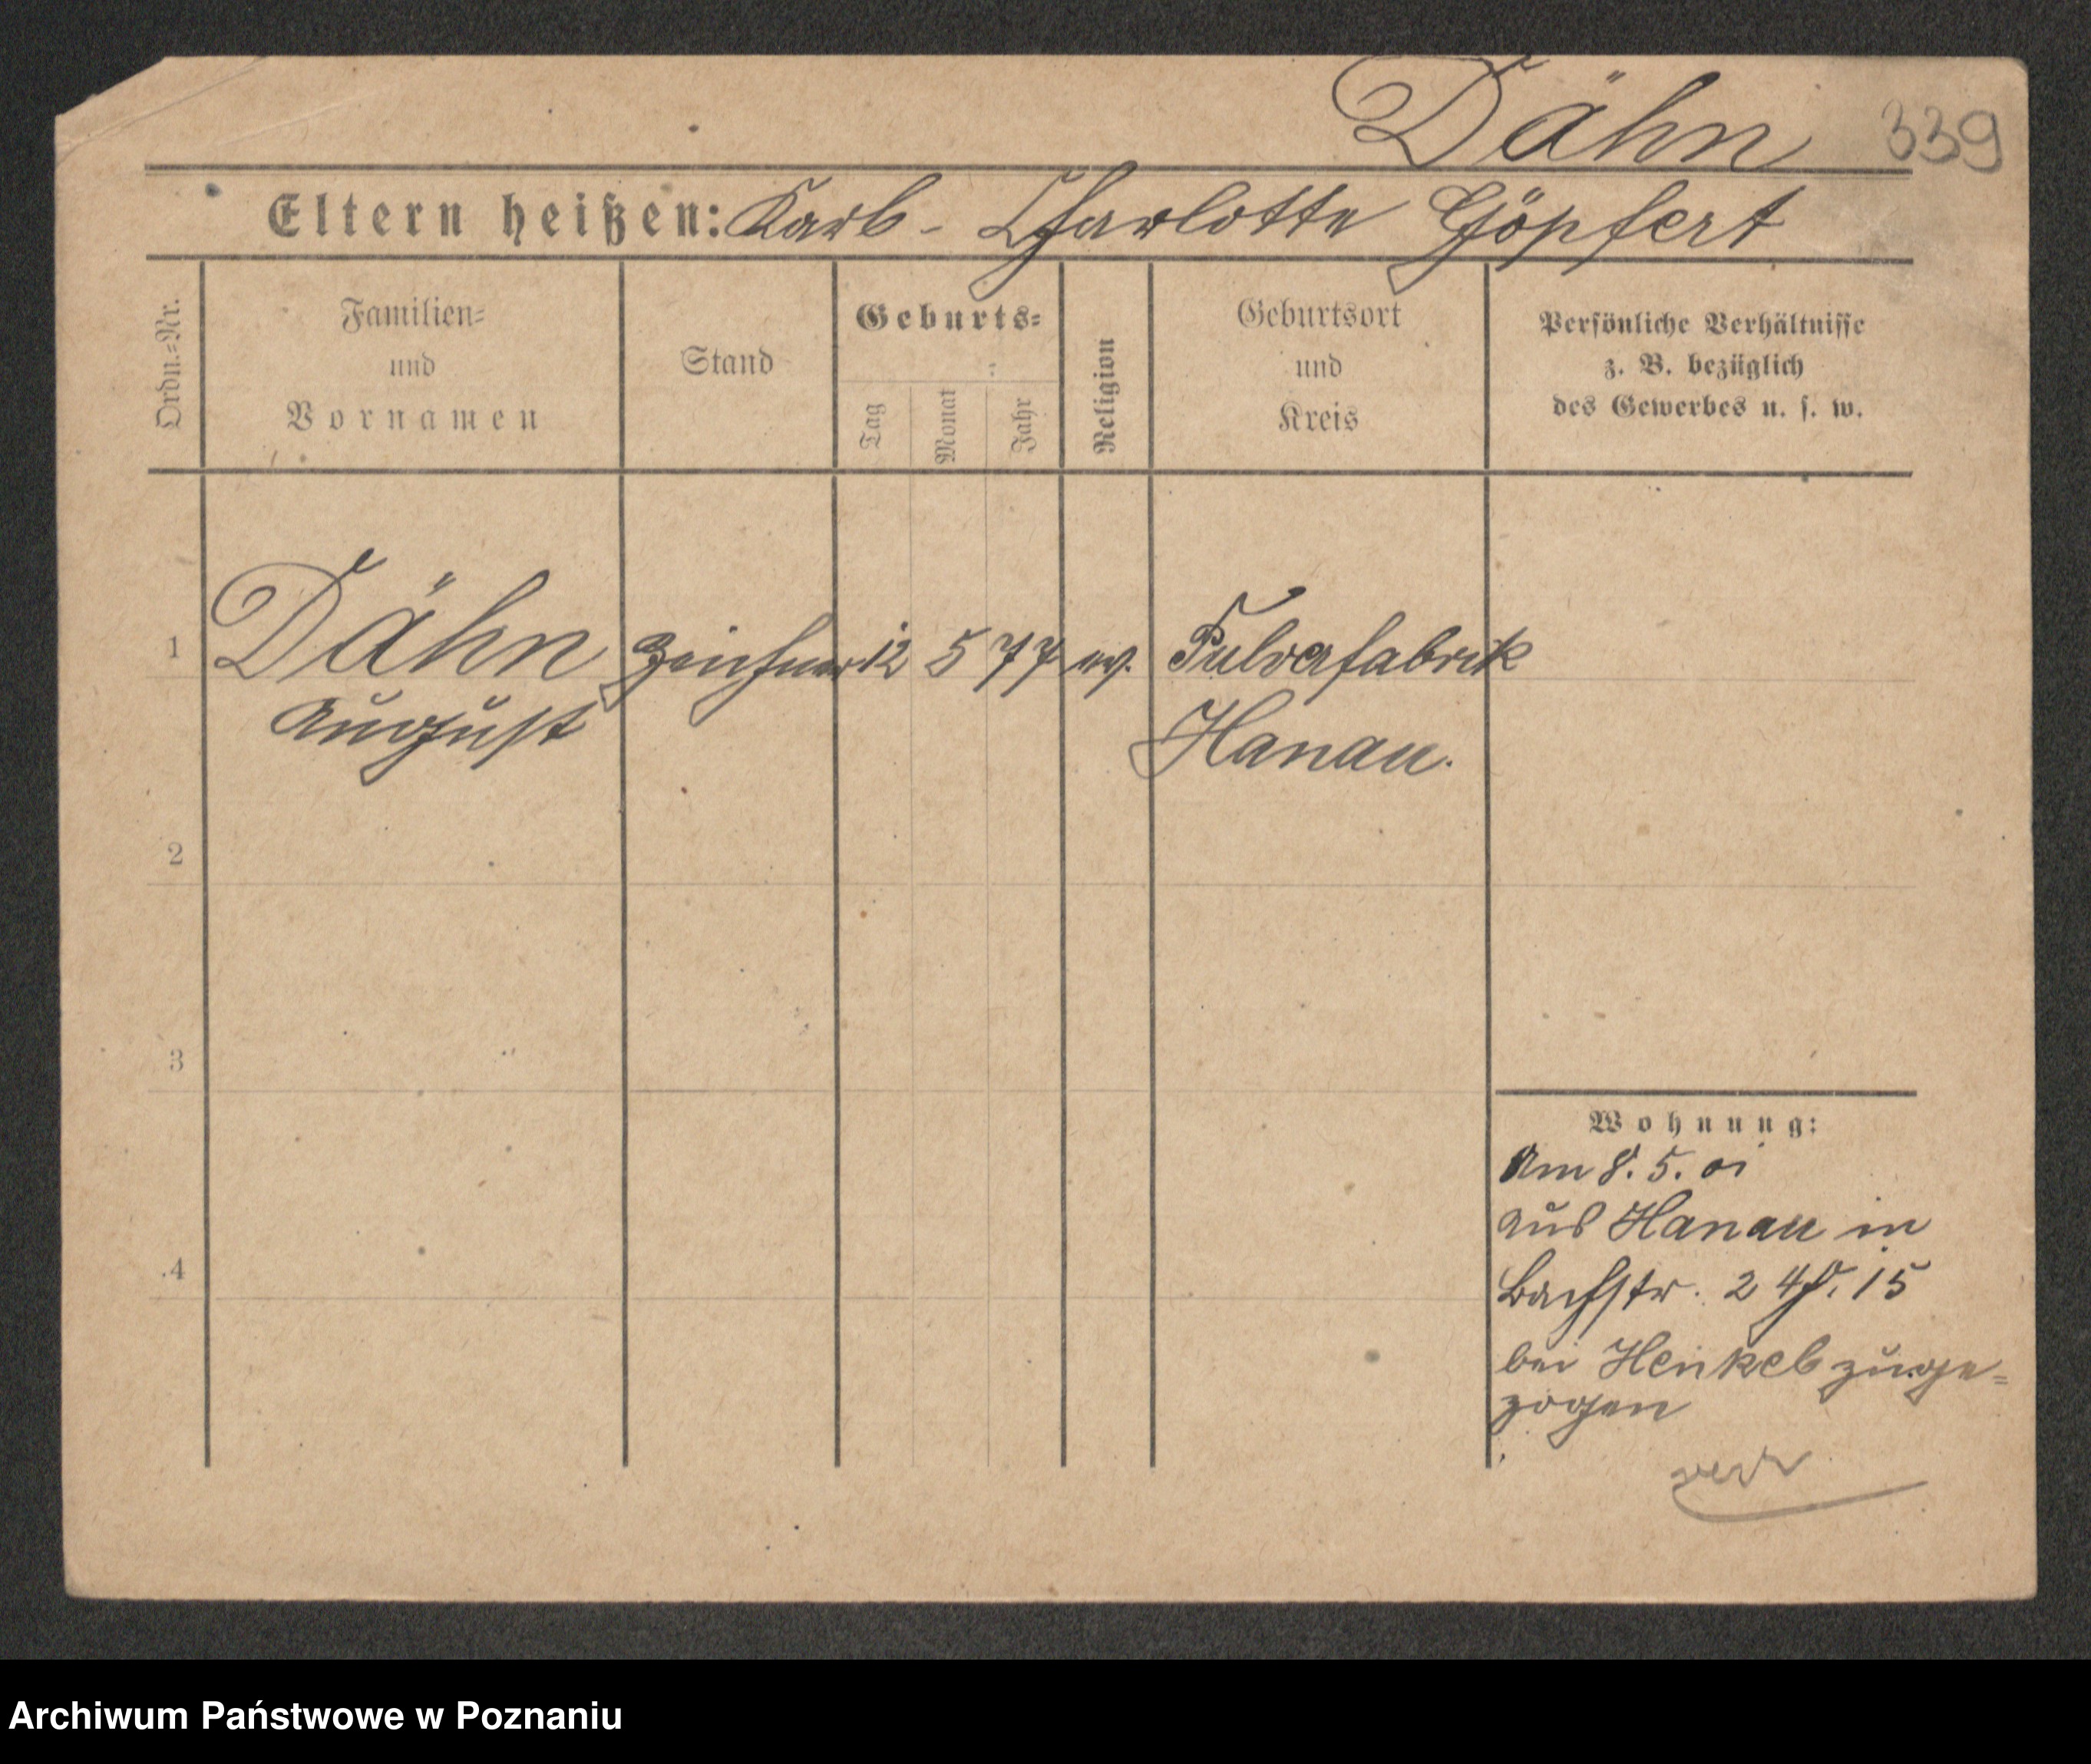 Dähn 339
Eltern heißen: Karl - Charlotte Göpfert
Ordn.=Nr.
Familien=
und
Vornamen
Stand
Geburts=
Tag
Monat
Jahr
Religion
Geburtsort
und
Kreis
Persönliche Verhältnisse
z. B. bezüglich
des Gewerbes u. s. w.
1 Dähn Zeichner 12 5 77 ev. Pulverfabrik
August Hanau.
2
3
4
Wohnung:
Am 8. 5. 01
aus Hanau in
Bachstr. 24 15
bei Henkel zuge=
zogen
Archiwum Państwowe w Poznaniu